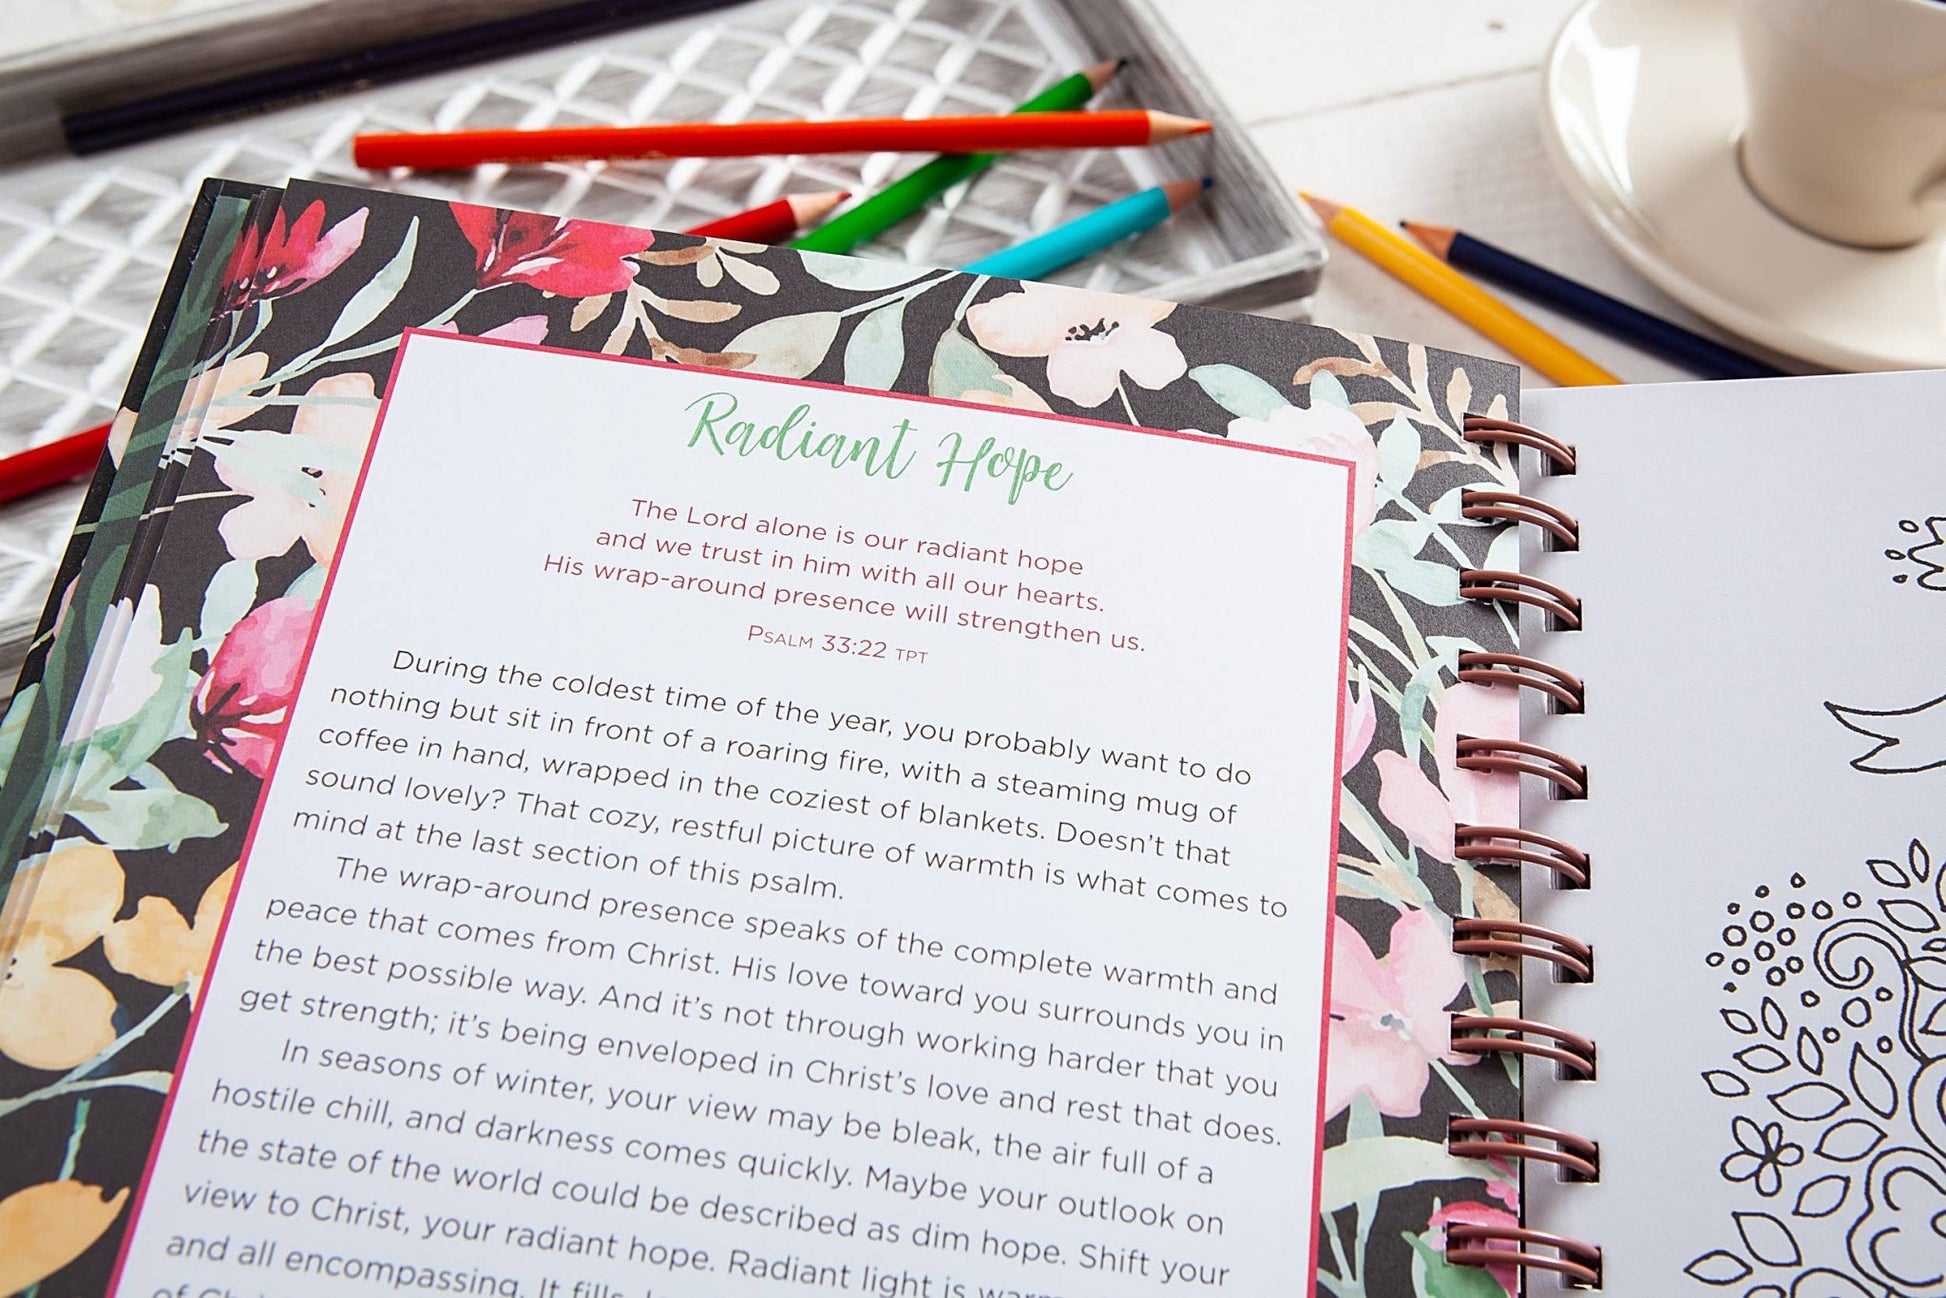 Radiant Hope
The Lord alone is our radiant hope
and we trust in him with all our hearts.
His wrap-around presence will strengthen us.
Psalm 33:22 TPT
During the coldest time of the year, you probably want to do
nothing but sit in front of a roaring fire, with a steaming mug of
coffee in hand, wrapped in the coziest of blankets. Doesn't that
sound lovely? That cozy, restful picture of warmth is what comes to
mind at the last section of this psalm.
The wrap-around presence speaks of the complete warmth and
peace that comes from Christ. His love toward you surrounds you in
the best possible way. And it's not through working harder that you
get strength; it's being enveloped in Christ's love and rest that does.
In seasons of winter, your view may be bleak, the air full of a
hostile chill, and darkness comes quickly. Maybe your outlook on
the state of the world could be described as dim hope. Shift your
view to Christ, your radiant hope. Radiant light is
and all encompassing. It fills